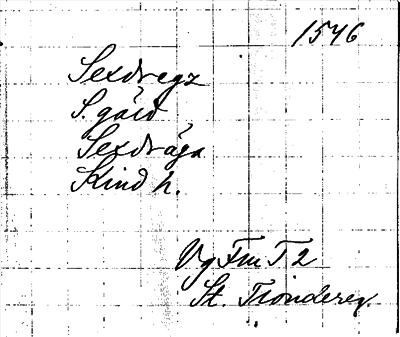 1546
Sexdregz
S. gård
Sexdräga
Kind h.
Vg Fm T 2
St. Tionderey.